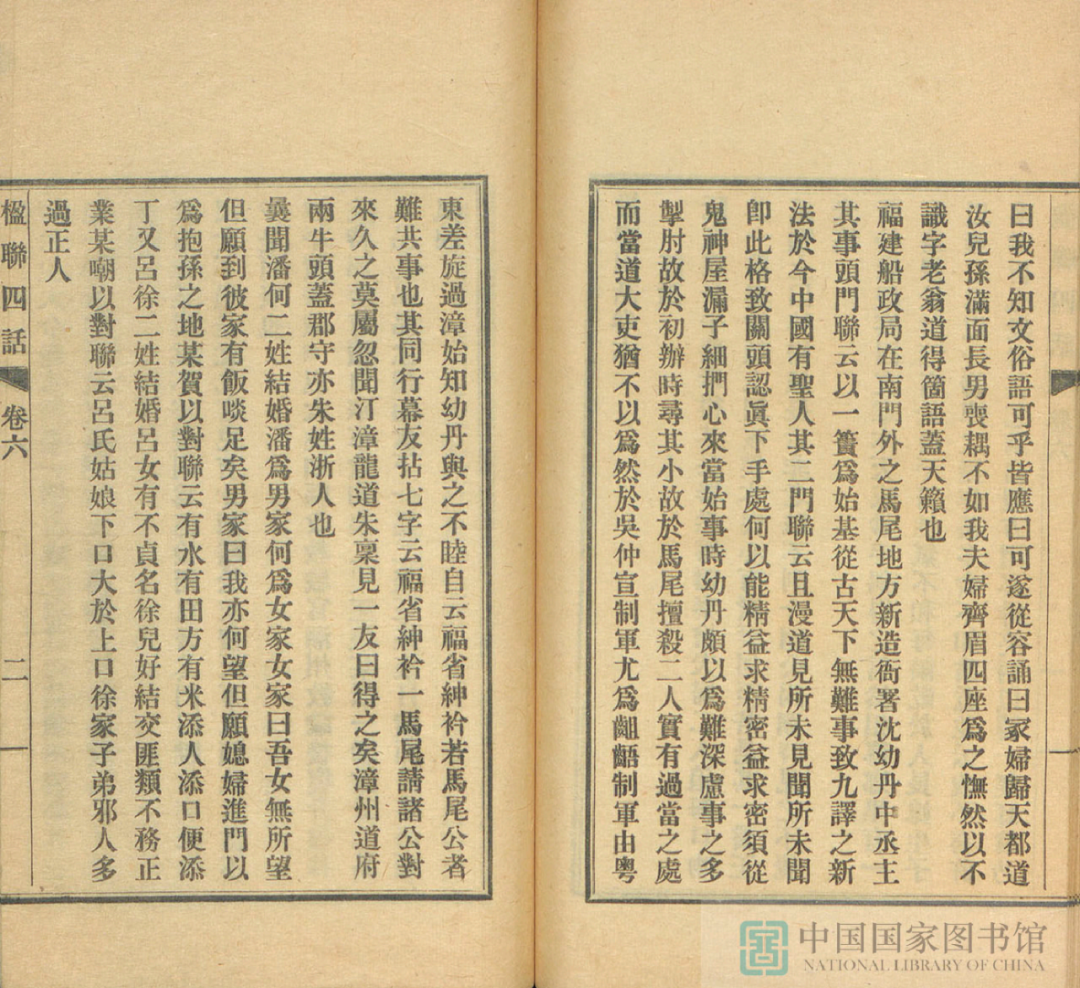 曰我不知文俗語可乎皆應曰可遂從容誦曰冢婦歸天都道
汝兒孫滿面長男喪耦不如我夫婦齊眉四座爲之憮然以不
識字老翁道得箇語蓋天籟也
福建船政局在南門外之馬尾地方新造衙署沈幼丹中丞主
其事頭門聯云以一簣爲始基從古天下無難事致九譯之新
法於今中國有聖人其二門聯云且漫道見所未見聞所未聞
卽此格致關頭認眞下手處何以能精益求精密益求密須從
鬼神屋漏子細捫心來當始事時幼丹頗以爲難深慮事之多
掣肘故於初辦時尋其小故於馬尾擅殺二人實有過當之處
而當道大吏猶不以爲然於吳仲宣制軍尤爲齟齬制軍由粵
東差旋過漳始知幼丹與之不睦自云福省紳衿若馬尾公者
難共事也其同行幕友拈七字云福省紳衿一馬尾請諸公對
來久之莫屬忽聞汀漳龍道朱稟見一友曰得之矣漳州道府
兩牛頭蓋郡守亦朱姓浙人也
曩聞潘何二姓結婚潘爲男家何爲女家女家曰吾女無所望
但願到彼家有飯啖足矣男家曰我亦何望但願媳婦進門以
爲抱孫之地某賀以對聯云有水有田方有米添人添口便添
丁又呂徐二姓結婚呂女有不貞名徐兒好結交匪類不務正
業某嘲以對聯云呂氏姑娘下口大於上口徐家子弟邪人多
過正人
楹聯四話
卷六
二
中国国家图书馆
NATIONAL LIBRARY OF CHINA